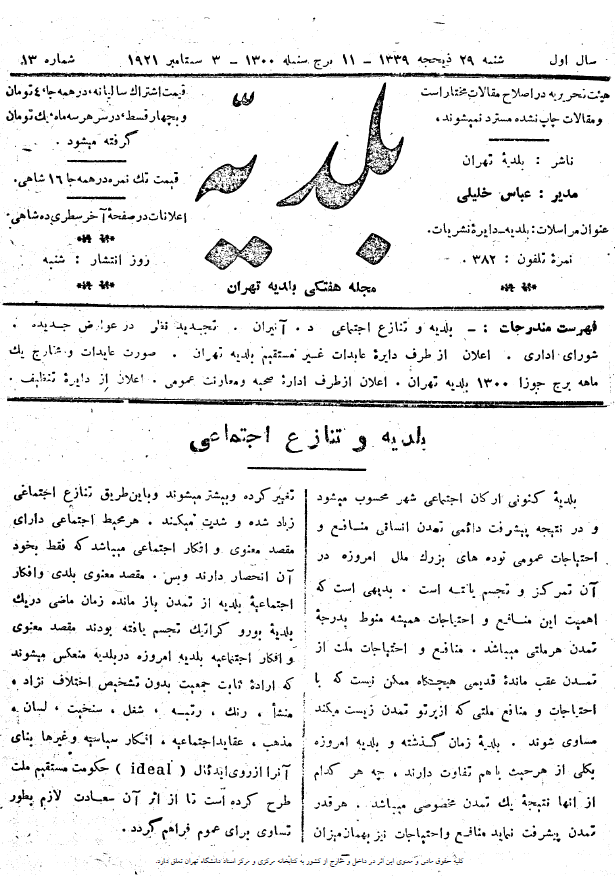 سال اول شنبه ۲۹ ذیحجه ۱۳۳۹ – ۱۱ برج سنبله ۱۳۰۰ – ۳ سپتامبر ۱۹۲۱ شماره ۱۳
هیئت تحریریه در اصلاح مقالات مختار است
و مقالات چاپ نشده مسترد نمیشوند.
ناشر : بلدیهٔ تهران
مدیر : عباس خلیلی
عنوان مراسلات: بلدیه-دایرهٔ نشریات.
نمرهٔ تلفون : ۳۸۲.
بلدیه
مجله هفتگی بلدیه تهران
قیمت اشتراك سالیانه، در همه جا، ٤ تومان
و بچهار قسط، در سر هر سه ماه، يك تومان
گرفته میشود .
قیمت تك نمره در همه جا ۱۶ شاهی.
اعلانات در صفحهٔ آخر سطری ده شاهی.
روز انتشار : شنبه
فهرست مندرجات : – بلدیه و تنازع اجتماعی در آنیران . تجدید نظر در عوارض جدیده .
شورای اداری . اعلان از طرف دایرهٔ عایدات غیر مستقیم بلدیه تهران . صورت عایدات و مخارج يك
ماهه برج جوزا ۱۳۰۰ بلدیه تهران . اعلان از طرف ادارهٔ صحیه و معاونت عمومی . اعلان از دایرهٔ تنظیف .
بلدیه و تنازع اجتماعی
بلدیهٔ کنونی ارکان اجتماعی شهر محسوب میشود
و در نتیجه پیشرفت دائمی تمدن انسانی منافع و
احتیاجات عمومی توده های بزرك ملل امروزه در
آن تمرکز و تجسم یافته است . بدیهی است که
اهمیت این منافع و احتیاجات همیشه منوط بدرجهٔ
تمدن هرملتی میباشد . منافع و احتیاجات ملت از
تمدن عقب ماندهٔ قدیمی هیچگاه ممکن نیست که با
احتیاجات و منافع ملتی که از پرتو تمدن زیست میکند
مساوی شوند . بلدیهٔ زمان گذشته و بلدیه امروزه
یکلی از هر حیث باهم تفاوت دارند ، چه هر کدام
از انها نتیجهٔ يك تمدن مخصوصی میباشد . هر قدر
تمدن پیشرفت نماید منافع و احتیاجات نیز بهمان میزان
تغییر کرده و بیشتر میشوند و باین طریق تنازع اجتماعی
زیاد شده و شدیت میکند . هر محیط اجتماعی دارای
مقصد معنوی و افکار اجتماعی میباشد که فقط بخود
آن انحصار دارند وبس . مقصد معنوی بلدی وافکار
اجتماعیهٔ بلدیه از تمدن باز مانده زمان ماضی دریك
بلدیهٔ بورو کراتیك تجسم یافته بودند مقصد معنوی
و افکار اجتماعیه بلدیه امروزه در بلدیه منعکس میشوند
که ارادهٔ ثابت جمعیت بدون تشخیص اختلاف نژاد ،
منشأ ، رنك ، رتبه ، شغل ، سنخیت ، لسان ،
مذهب ، عقاید اجتماعیه ، افکار سیاسیه وغیرها بنای
آنرا از روی ایدئال ( ideal ) حکومت مستقیم ملت
طرح کرده است تا از اثر آن سعادت لازم بطور
تساوی برای عموم فراهم گردد .
کلیهٔ حقوق مادی و معنوی این اثر در داخل و خارج از کشور به کتابخانه مرکزی و مرکز اسناد دانشگاه تهران تعلق دارد.